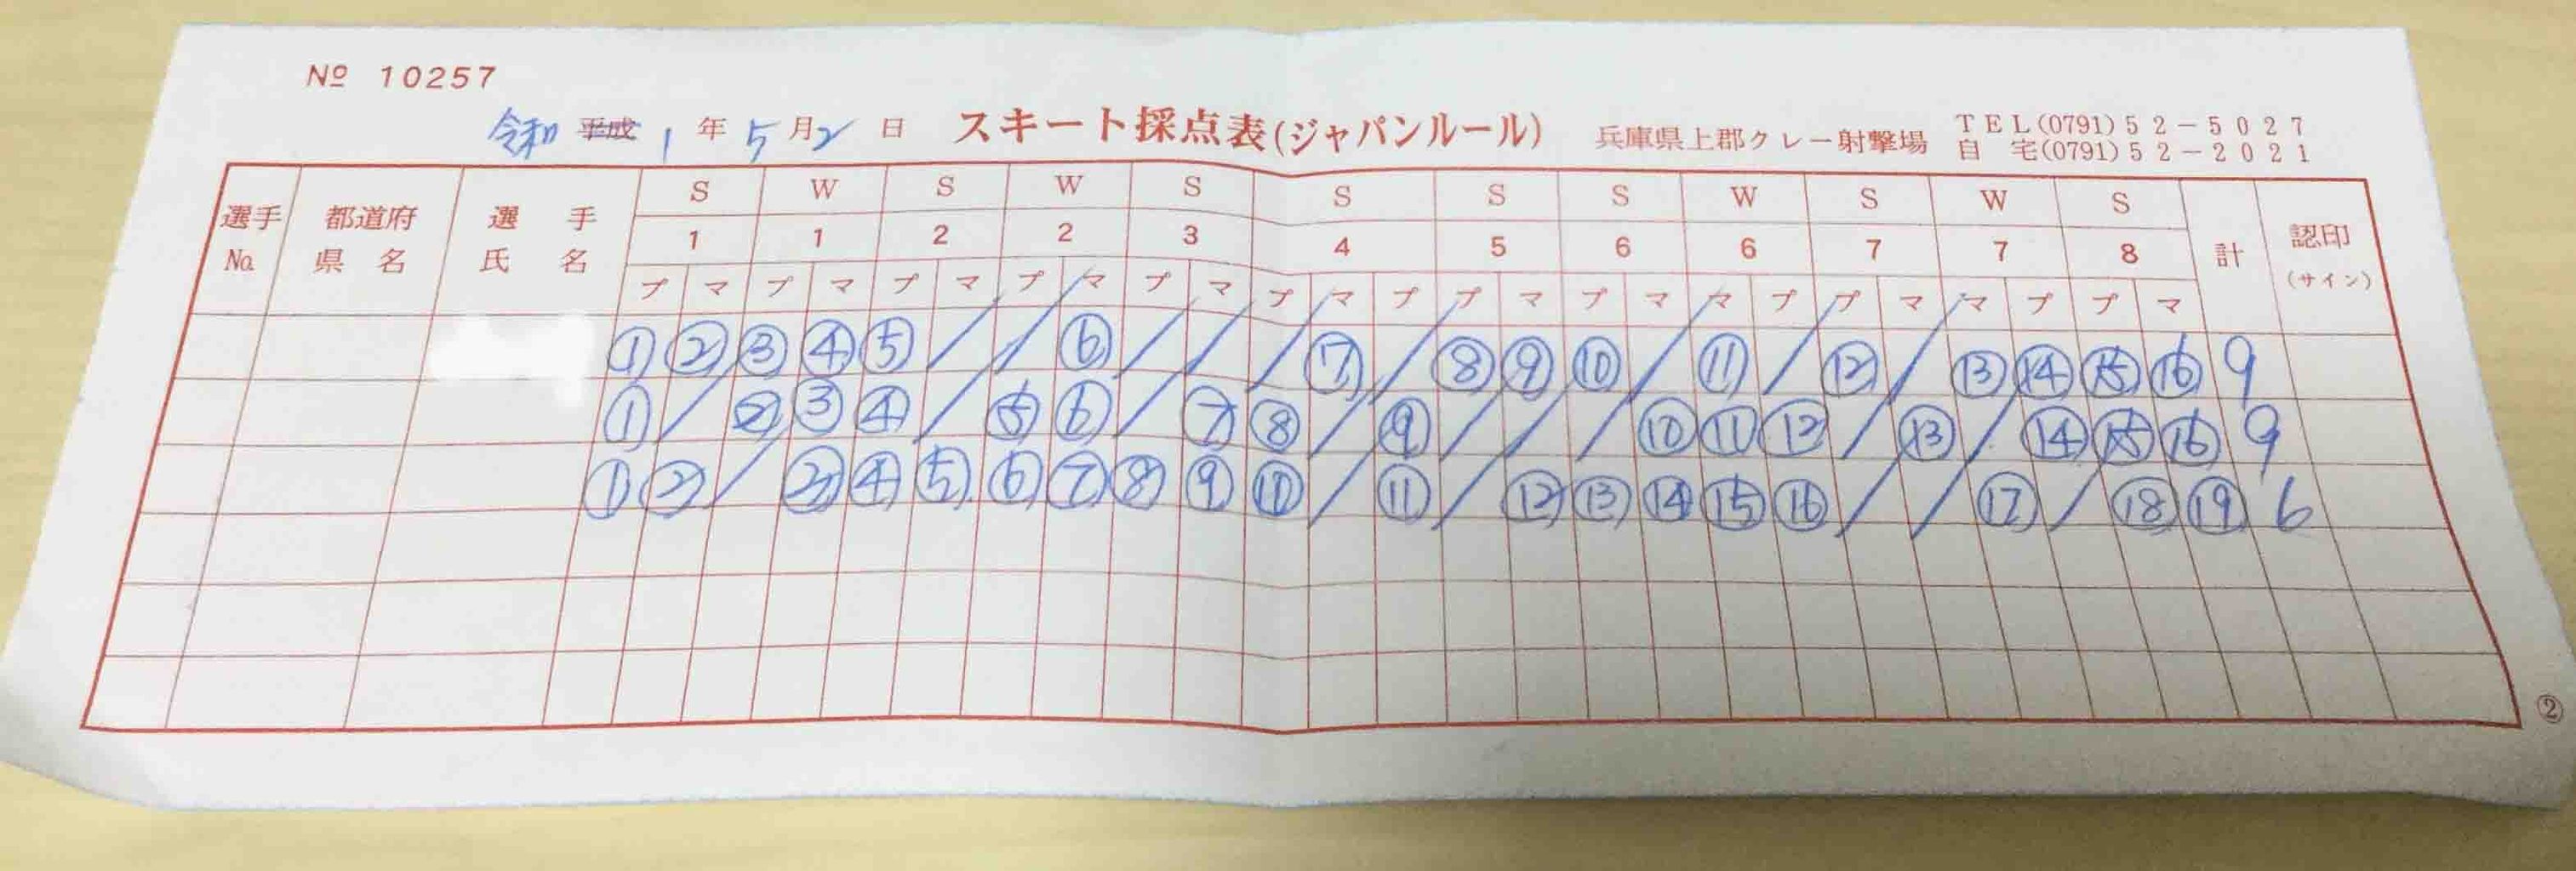 № 10257
令和 平成 1 年 5 月 2 日 スキート採点表(ジャパンルール) 兵庫県上郡クレー射撃場 TEL(0791)52-5027
自宅(0791)52-2021
選手No. 都道府県名 選手氏名 S W S W S S S S W S W S 計 認印(サイン)
1 1 2 2 3 4 5 6 6 7 7 8
プ マ プ マ プ マ プ マ プ マ プ マ プ プ マ プ マ マ プ プ マ マ プ プ マ
① ② ③ ④ ⑤ / / ⑥ / / / ⑦ / ⑧ ⑨ ⑩ / ⑪ / ⑫ / ⑬ ⑭ ⑮ ⑯ 9
① / ② ③ ④ / ⑤ ⑥ / ⑦ ⑧ / ⑨ / / / ⑩ ⑪ ⑫ / ⑬ / ⑭ ⑮ ⑯ 9
① ② / ③ ④ ⑤ ⑥ ⑦ ⑧ ⑨ ⑩ / ⑪ / ⑫ ⑬ ⑭ ⑮ ⑯ / / ⑰ / ⑱ ⑲ 6
②